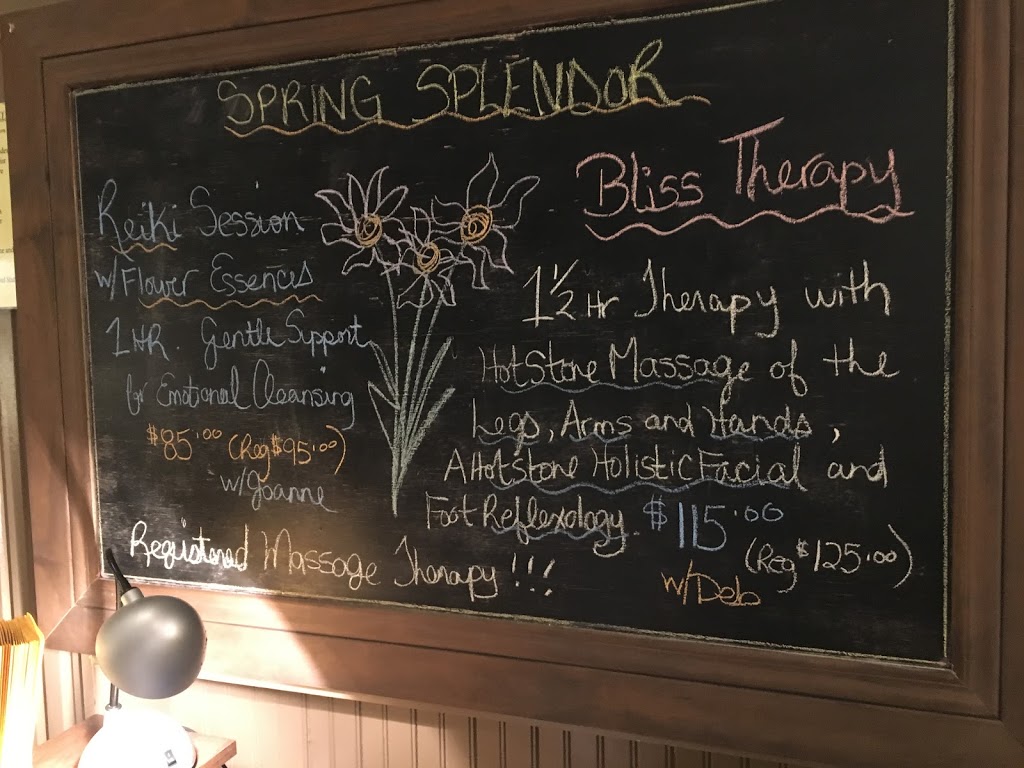 SPRING SPLENDOR
Reiki Session
w/Flower Essences
1 HR. Gentle Support
for Emotional Cleansing
$85.00 (Reg $95.00)
w/Joanne
Registered Massage Therapy!!!
Bliss Therapy
1 1/2 Hr Therapy with
HotStone Massage of the
Legs, Arms and Hands,
A Hotstone Holistic Facial and
Foot Reflexology. $115.00
(Reg $125.00)
w/Deb